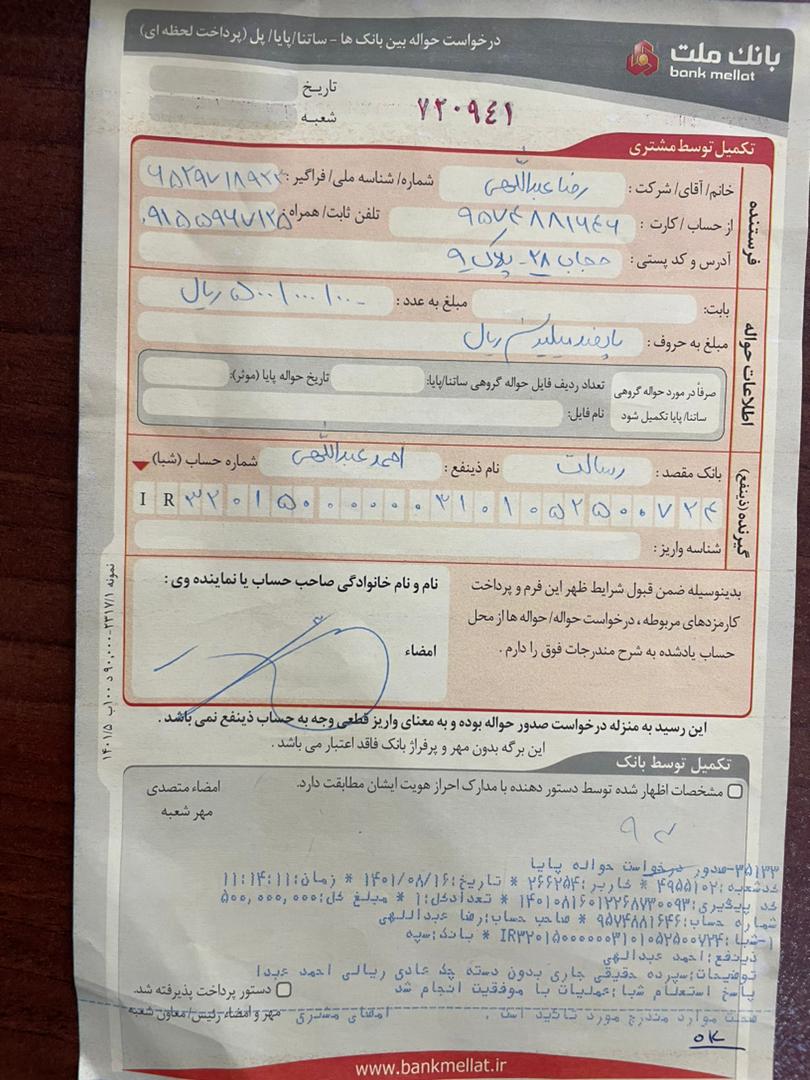 درخواست حواله بین بانک ها - ساتنا/پایا/ پل (پرداخت لحظه ای)
بانک ملت
bank mellat
تاریخ
شعبه
۷۲۰۹۴۱
تکمیل توسط مشتری
فرستنده
خانم/ آقای/ شرکت : رضا عبداللهی شماره/ شناسه ملی/ فراگیر :
از حساب / کارت : ۹۵۷۴۸۸۱۶۴۶ تلفن ثابت/ همراه : ۰۹۱۵۵۹۶۷۱۲۵
آدرس و کد پستی : حجاب ۲۸ - پلاک ۹
اطلاعات حواله
بابت : مبلغ به عدد : ۵۰۰/۰۰۰/۰۰۰ ریال
مبلغ به حروف : پانصد میلیون ریال
صرفاً در مورد حواله گروهی ساتنا/ پایا تکمیل شود
تعداد ردیف فایل حواله گروهی ساتنا/پایا: تاریخ حواله پایا (موثر):
نام فایل:
گیرنده (ذینفع)
بانک مقصد : رسالت نام ذینفع : احمد عبداللهی شماره حساب (شبا)
IR ۳۲۰۱۵۰۰۰۰۰۰۳۱۰۱۰۵۲۵۰۰۷۲۴
شناسه واریز :
بدینوسیله ضمن قبول شرایط ظهر این فرم و پرداخت
کارمزدهای مربوطه ، درخواست حواله/ حواله ها از محل
حساب یادشده به شرح مندرجات فوق را دارم .
نام و نام خانوادگی صاحب حساب یا نماینده وی :
امضاء
این رسید به منزله درخواست صدور حواله بوده و به معنای واریز قطعی وجه به حساب ذینفع نمی باشد .
این برگه بدون مهر و پرفراژ بانک فاقد اعتبار می باشد .
نمونه ۲۳۱۷/۱-۹۰,۰۰۰ د ۱۰۰ب ۱۴۰۱/۵
تکمیل توسط بانک
مشخصات اظهار شده توسط دستور دهنده با مدارک احراز هویت ایشان مطابقت دارد.
امضاء متصدی
مهر شعبه
۳۵۱۳۳-صدور درخواست حواله پایا
کدشعبه :۴۹۵۵۱۰۲ * کاربر :۲۶۶۲۵۴ * تاریخ:۱۴۰۱/۰۸/۱۶ * زمان:۱۱:۱۴:۱۱
کد پیگیری:۱۴۰۱۰۸۱۶۰۱۲۲۶۸۷۳۰۰۹۳ * تعدادکل:۱ * مبلغ کل:۵۰۰,۰۰۰,۰۰۰
شماره حساب:۹۵۷۴۸۸۱۶۴۶ * صاحب حساب:رضا عبداللهی
۱-شبا :IR۳۲۰۱۵۰۰۰۰۰۰۳۱۰۱۰۵۲۵۰۰۷۲۴ * بانک:سپه
ذینفع:احمد عبدالهی
توضیحات:سپرده حقیقی جاری بدون دسته چک عادی ریالی احمد عبدا
پاسخ استعلام شبا:عملیات با موفقیت انجام شد
صحت موارد مندرج مورد تائید است . امضای مشتری
دستور پرداخت پذیرفته شد.
مهر و امضاء رئیس/ معاون شعبه
OK
www.bankmellat.ir